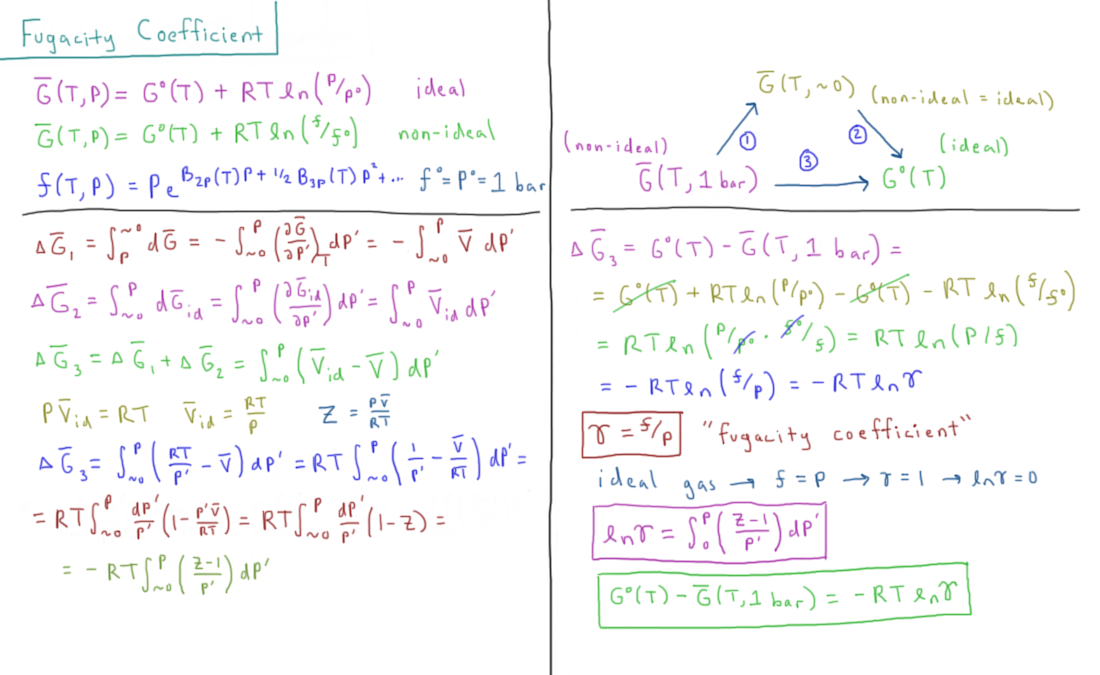 Fugacity Coefficient
G̅(T,P) = G°(T) + RT ln(P/P°) ideal
G̅(T,P) = G°(T) + RT ln(f/f°) non-ideal
f(T,P) = P e^(B₂ₚ(T)P + 1/2 B₃ₚ(T)P² + ...) f° = P° = 1 bar
ΔG̅₁ = ∫_P^~0 dG̅ = - ∫_~0^P (∂G̅/∂P')_T dP' = - ∫_~0^P V̅ dP'
ΔG̅₂ = ∫_~0^P dG̅id = ∫_~0^P (∂G̅id/∂P') dP' = ∫_~0^P V̅id dP'
ΔG̅₃ = ΔG̅₁ + ΔG̅₂ = ∫_~0^P (V̅id - V̅) dP'
PV̅id = RT V̅id = RT/P Z = PV̅/RT
ΔG̅₃ = ∫_~0^P (RT/P' - V̅) dP' = RT ∫_~0^P (1/P' - V̅/RT) dP' =
= RT ∫_~0^P dP'/P' (1 - P'V̅/RT) = RT ∫_~0^P dP'/P' (1-Z) =
= - RT ∫_~0^P (Z-1/P') dP'
G̅(T,~0) (non-ideal = ideal)
① ②
(non-ideal) ③ (ideal)
G̅(T,1 bar) → G°(T)
ΔG̅₃ = G°(T) - G̅(T,1 bar) =
= G°(T) + RT ln(P/P°) - G°(T) - RT ln(f/f°)
= RT ln(P/P° · f°/f) = RT ln(P/f)
= - RT ln(f/P) = - RT ln γ
γ = f/P "fugacity coefficient"
ideal gas → f = P → γ = 1 → ln γ = 0
ln γ = ∫_0^P (Z-1/P') dP'
G°(T) - G̅(T,1 bar) = - RT ln γ